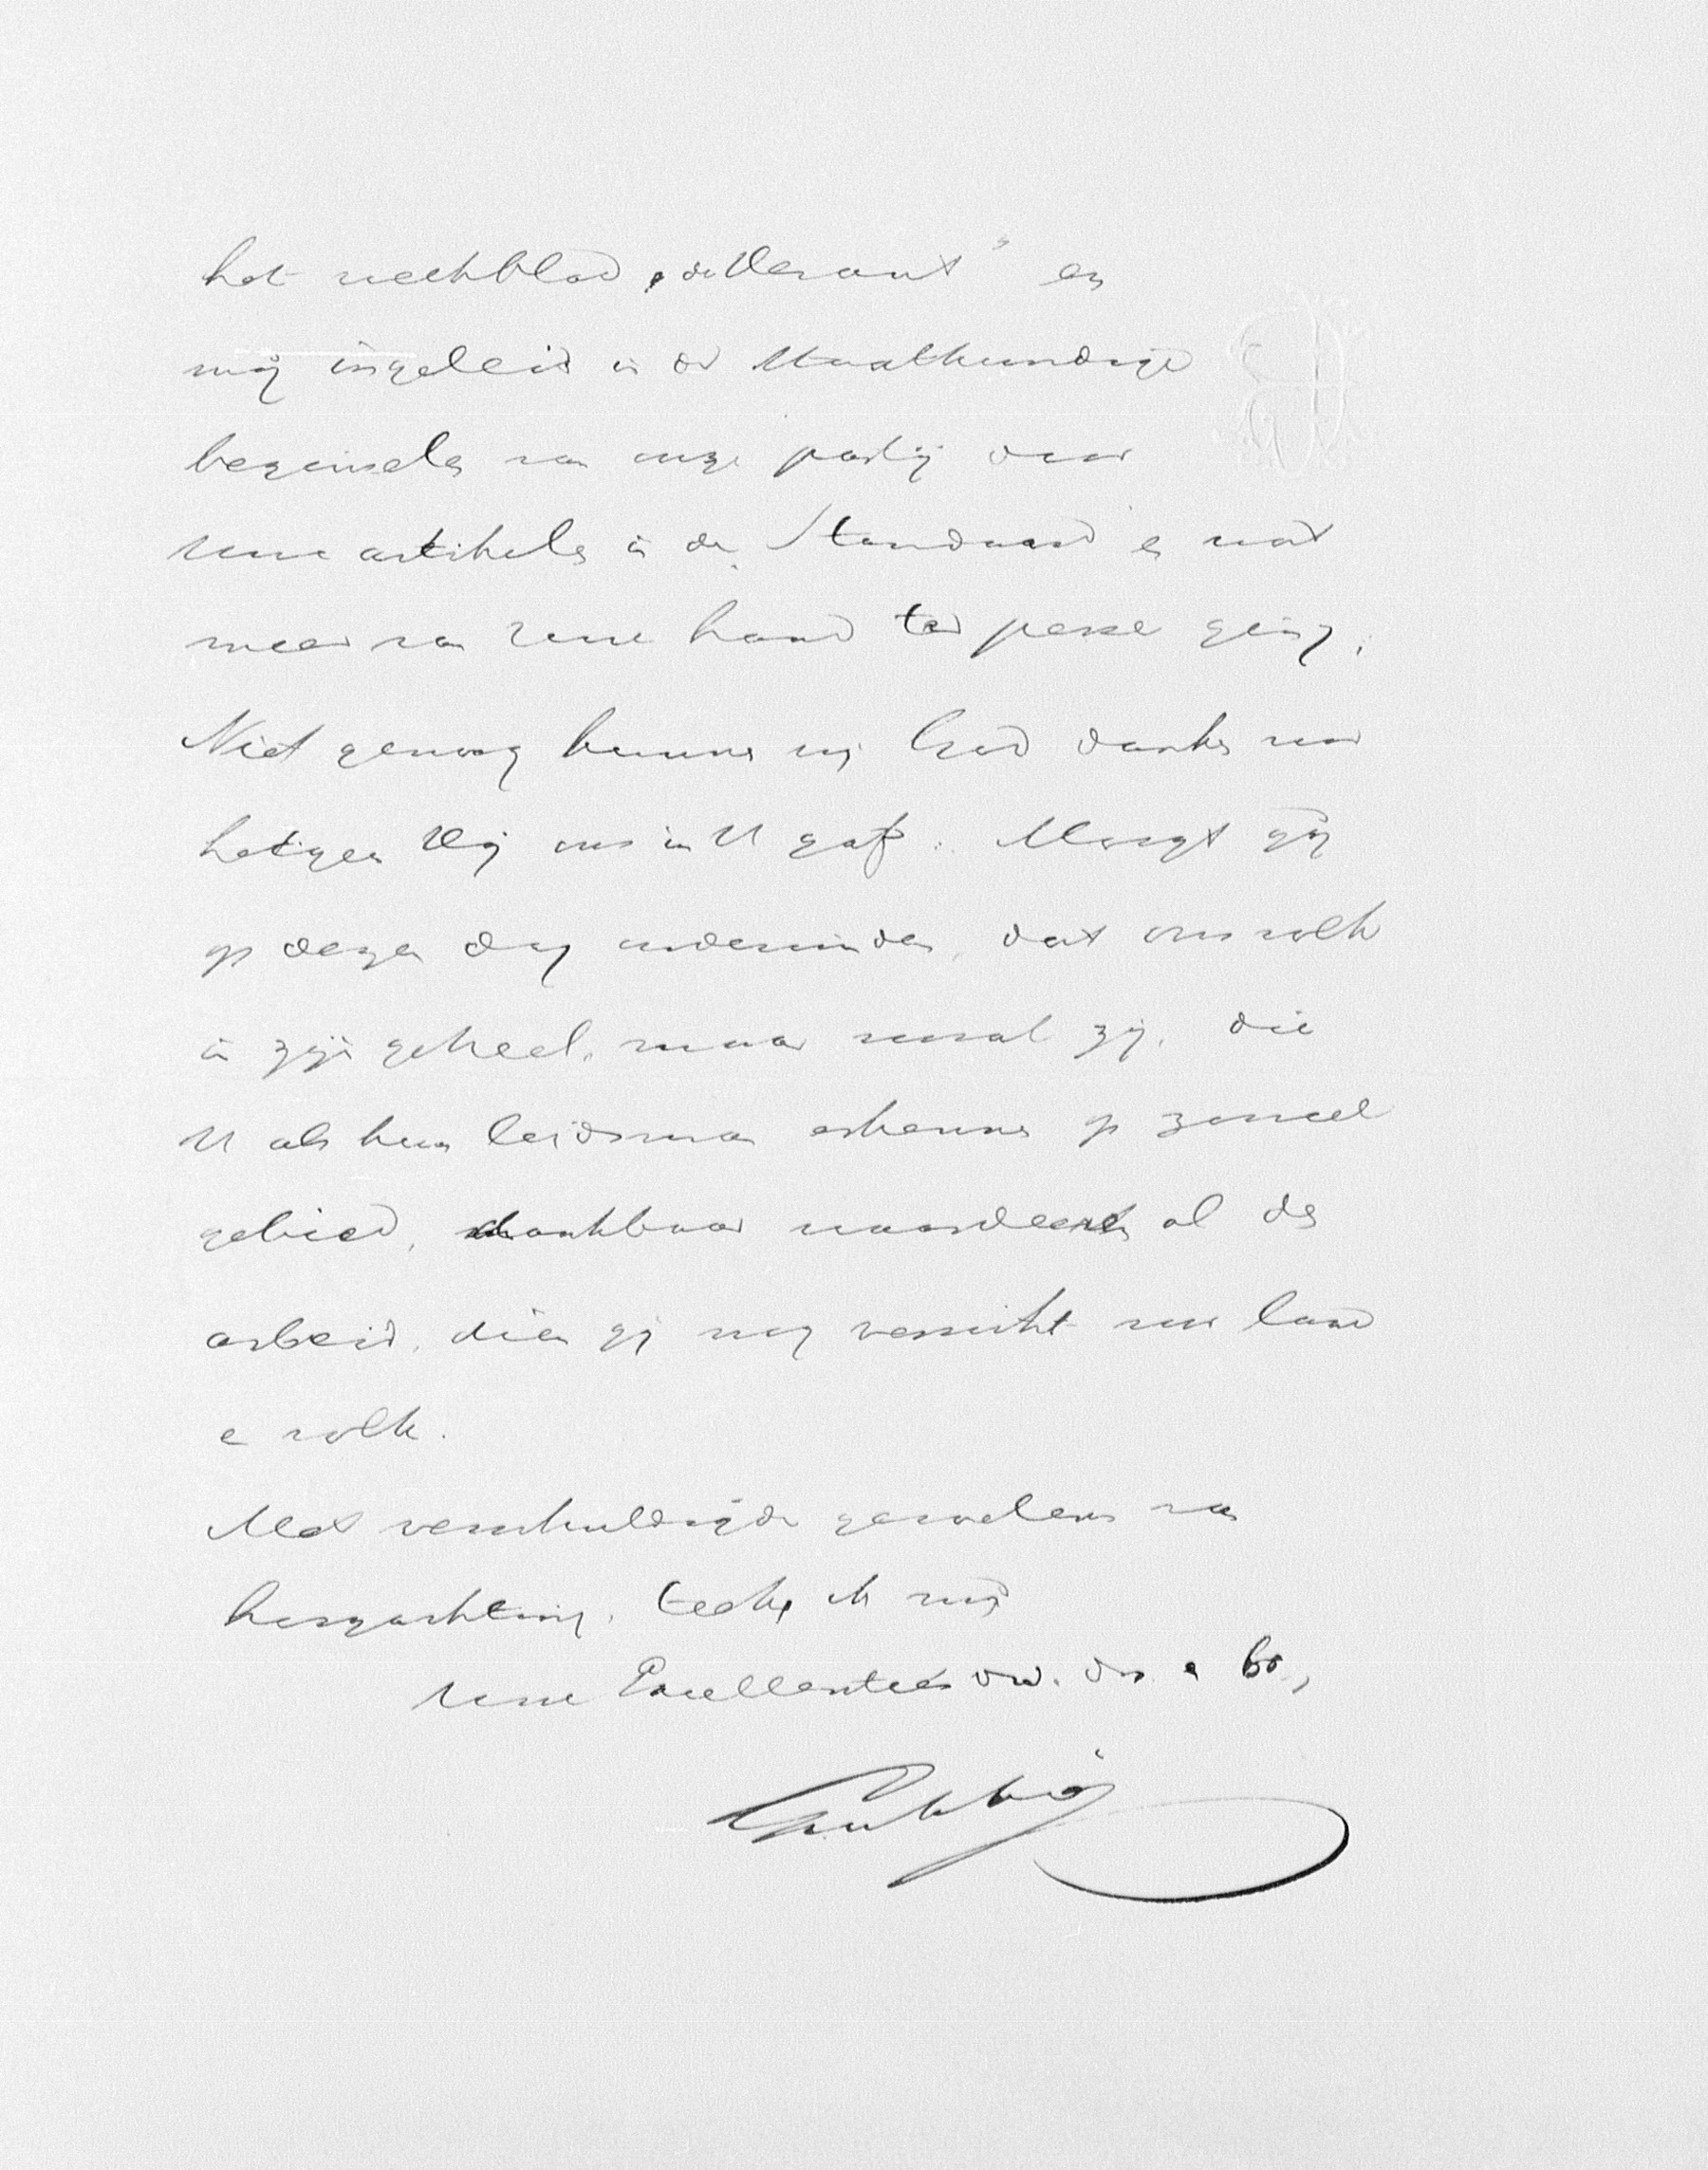 het weekblad „de Heraut" en
mij ingeleid in de staatkundige
beginselen van onze partij door
uwe artikelen in de Standaard en wat
meer van uwe hand ter perse ging.
Niet genoeg kunnen wij God danken voor
hetgeen Hij ons in U gaf. Moogt gij
op dezen dag ondervinden, dat ons volk
in zijn geheel, maar vooral zij, die
U als hun leidsman erkennen op zooveel
gebied, dankbaar waardeert al de
arbeid, dien gij nog verricht voor land
en volk.
Met verschuldigde gevoelens van
hoogachting, teeken ik mij
uwe Excellenties dw. dr. en br.,